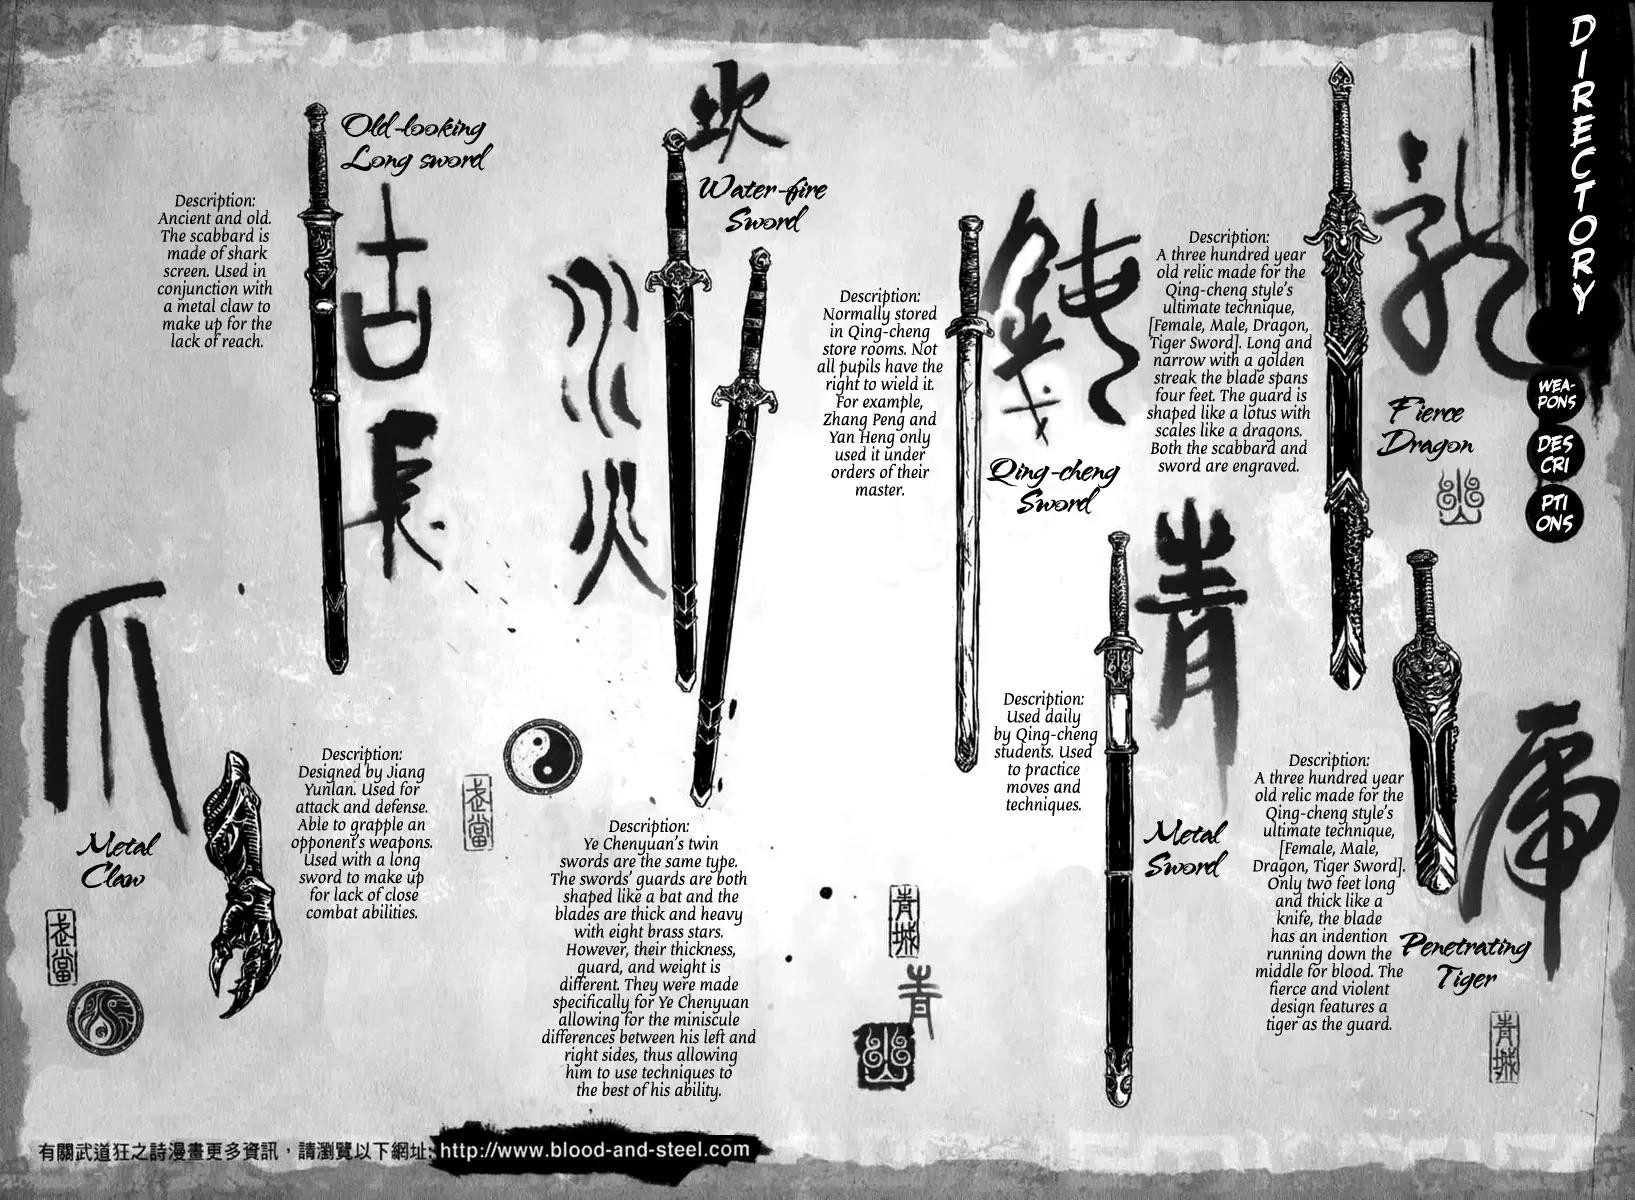 DIRECTORY
WEA-
PONS
DES
CRI
PTI
ONS
Old-looking
Long sword
Description:
Ancient and old.
The scabbard is
made of shark
screen. Used in
conjunction with
a metal claw to
make up for the
lack of reach.
古
長
坎
Water-fire
Sword
水
火
Description:
Ye Chenyuan's twin
swords are the same type.
The swords' guards are both
shaped like a bat and the
blades are thick and heavy
with eight brass stars.
However, their thickness,
guard, and weight is
different. They were made
specifically for Ye Chenyuan
allowing for the miniscule
differences between his left and
right sides, thus allowing
him to use techniques to
the best of his ability.
爪
Metal
Claw
Description:
Designed by Jiang
Yunlan. Used for
attack and defense.
Able to grapple an
opponent's weapons.
Used with a long
sword to make up
for lack of close
combat abilities.
武當
武當
Description:
Normally stored
in Qing-cheng
store rooms. Not
all pupils have the
right to wield it.
For example,
Zhang Peng and
Yan Heng only
used it under
orders of their
master.
Qing-cheng
Sword
Description:
Used daily
by Qing-cheng
students. Used
to practice
moves and
techniques.
青
Metal
Sword
青城
青
Description:
A three hundred year
old relic made for the
Qing-cheng style's
ultimate technique,
[Female, Male, Dragon,
Tiger Sword]. Long and
narrow with a golden
streak the blade spans
four feet. The guard is
shaped like a lotus with
scales like a dragons.
Both the scabbard and
sword are engraved.
龍
Fierce
Dragon
Description:
A three hundred year
old relic made for the
Qing-cheng style's
ultimate technique,
[Female, Male,
Dragon, Tiger Sword].
Only two feet long
and thick like a
knife, the blade
has an indention
running down the
middle for blood. The
fierce and violent
design features a
tiger as the guard.
虎
Penetrating
Tiger
青城
有關武道狂之詩漫畫更多資訊，請瀏覽以下網址: http://www.blood-and-steel.com